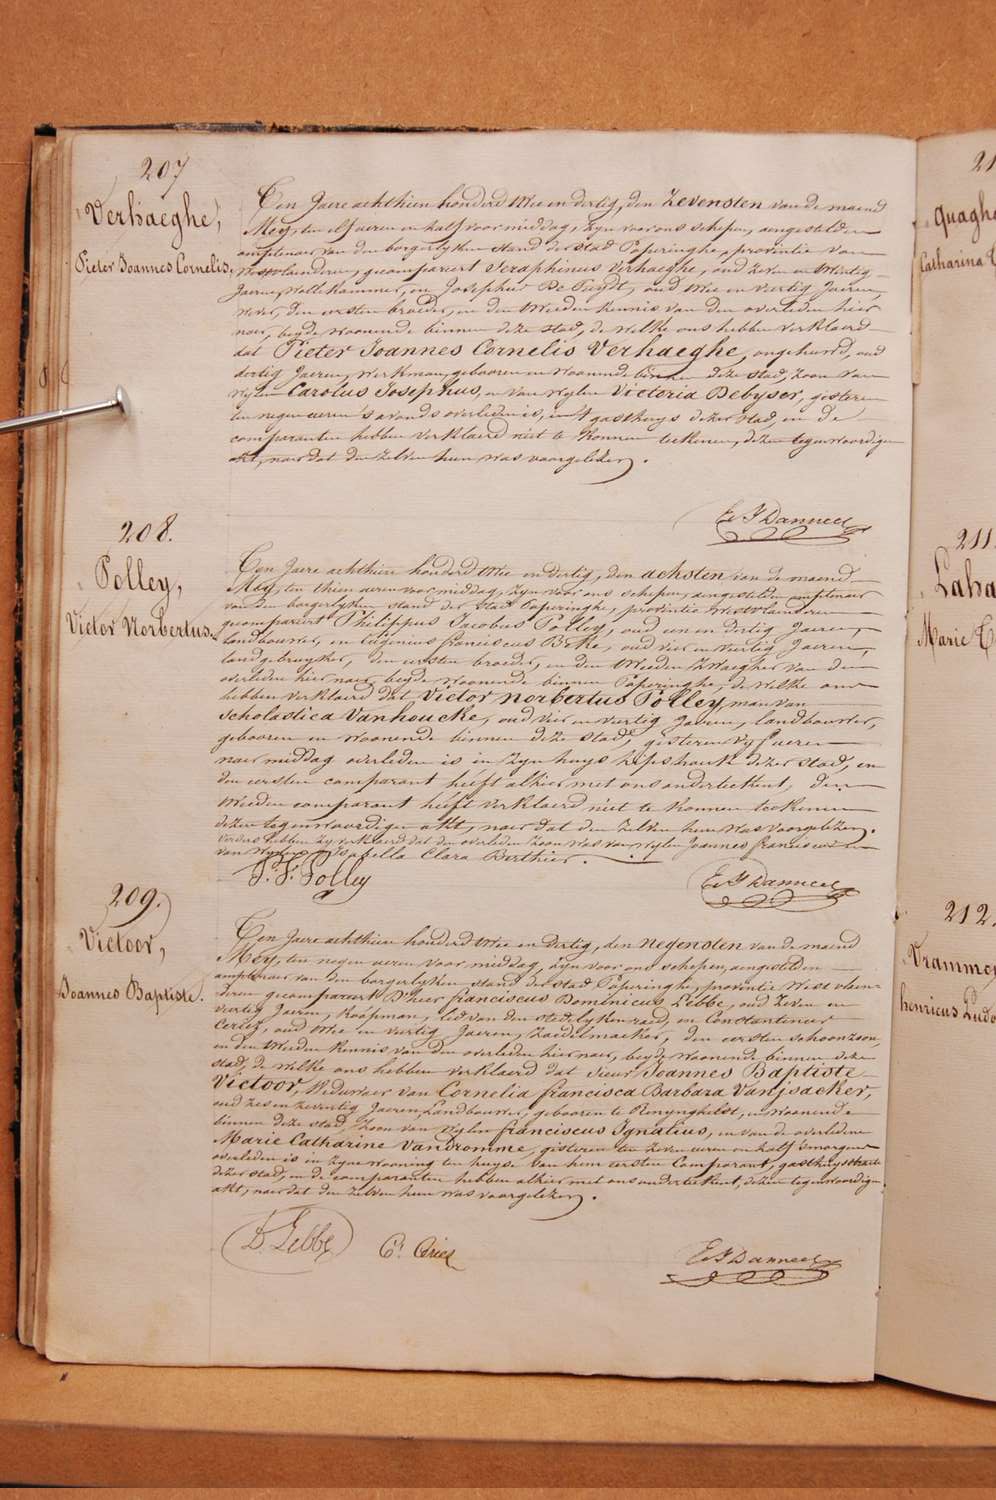 207
Verhaeghe,
Pieter Joannes Cornelis.
Ten Jaere achthien honderd twee en dertig, den Zevensten van de maend
Mey, ten elf ueren en half voor middag, zyn voor ons schepen, aengestelden
amptenaer van den borgerlyken stand der stad Poperinghe, provintie van
Westvlaenderen, gecompareert Seraphinus Verhaeghe, oud zeven en twintig
Jaeren, Wolle Kammer, en Josephus De Puydt, oud twee en veertig Jaeren,
Wever, den eersten broeder, en den tweeden kennis van den overleden hier
naer, beyde woonende binnen deze stad, de welke ons hebben verklaerd
dat Pieter Joannes Cornelis Verhaeghe, ongehuwd, oud
dertig Jaeren, werkman, gebooren en woonende binnen deze stad, zoon van
wylen Carolus Josephus, en van wylen Victoria Debyser, gisteren
ten negen ueren 's avonds overleden is, in 't gasthuys dezer stad, en de
comparanten hebben verklaerd niet te konnen teekenen, dezen tegenwoordigen
akt, naer dat den zelven hun was voorgelezen.
E J Danneel
208.
Polley,
Victor Norbertus.
Ten Jaere achthien honderd twee en dertig, den achsten van de maend
Mey, ten thien ueren voor middag, zyn voor ons schepen, aengestelden amptenaer
van den borgerlyken stand der stad Poperinghe, provintie Westvlaenderen
gecompareert Philippus Jacobus Polley, oud een en dertig Jaeren,
landbouwer, en Eugenius franciscus Beke, oud vier en veertig Jaeren,
landgebruyker, den eersten broeder, en den tweeden zwaegher van den
overleden hier naer, beyde woonende binnen Poperinghe, de welke ons
hebben verklaerd dat Victor Norbertus Polley, man van
Scholastica Vanhoucke, oud vier en veertig Jaeren, landbouwer,
gebooren en woonende binnen deze stad, gisteren vyf ueren
naer middag overleden is in zyn huys zepshoek dezer stad, en
den eersten comparant heeft alhier met ons onderteekent, den
tweeden comparant heeft verklaerd niet te konnen teekenen
dezen tegenwoordigen akt, naer dat den zelven hun was voorgelezen.
voorts hebben zy verklaerd dat den overleden zoon was van wylen Joannes franciscus en
van wylen Isabella Clara Berthier.
P. J. Polley
E J Danneel
209.
Victoor,
Joannes Baptiste.
Ten Jaere achthien honderd twee en dertig, den negensten van de maend
Mey, ten negen ueren voor middag, zyn voor ons schepen, aengestelden
amptenaer van den borgerlyken stand der stad Poperinghe, provintie West vlaen-
deren gecompareert D'heer franciscus Dominicus Lebbe, oud zeven en
veertig Jaeren, Koopman, lid van den stedelyken raed, en Constantinus
Ceriez, oud twee en veertig Jaeren, zaedelmaeker, den eersten schoonzoon,
en den tweeden kennis van den overleden hier naer, beyde woonende binnen deze
stad, de welke ons hebben verklaerd dat sieur Joannes Baptiste
Victoor, weduwaer van Cornelia francisca Barbara Vanjsacker,
oud zes en zeventig Jaeren, Landbouwer, gebooren te Renynghelst, en woonende
binnen deze stad, zoon van wylen franciscus Ignatius, en van de overledene
Marie Catharine Vandromme, gisteren ten zeven ueren en half 's morgens
overleden is in zyne wooning ten huyse van hem eersten Comparant, gasthuysstraete
dezer stad, en de comparanten hebben alhier met ons onderteekent, dezen tegenwoordigen
akt, naer dat den zelven hun was voorgelezen.
D. Lebbe
C. Ceriez
E J Danneel
21
Quagh
Catharina
211.
Laha
Marie
212.
Vramme
henricus Ludo